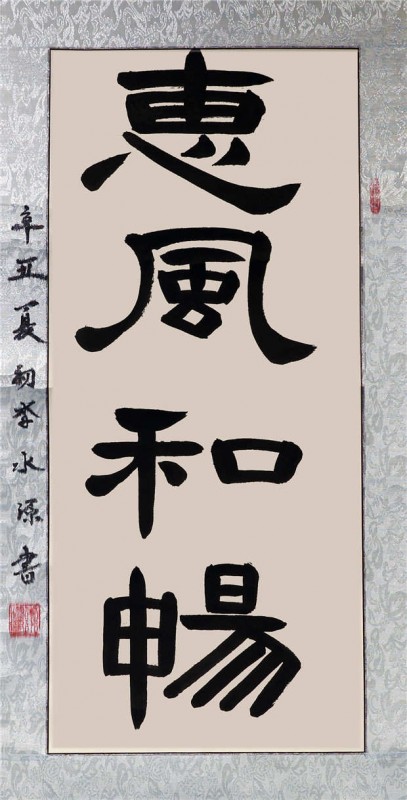 惠風和暢
辛丑夏初李水源書